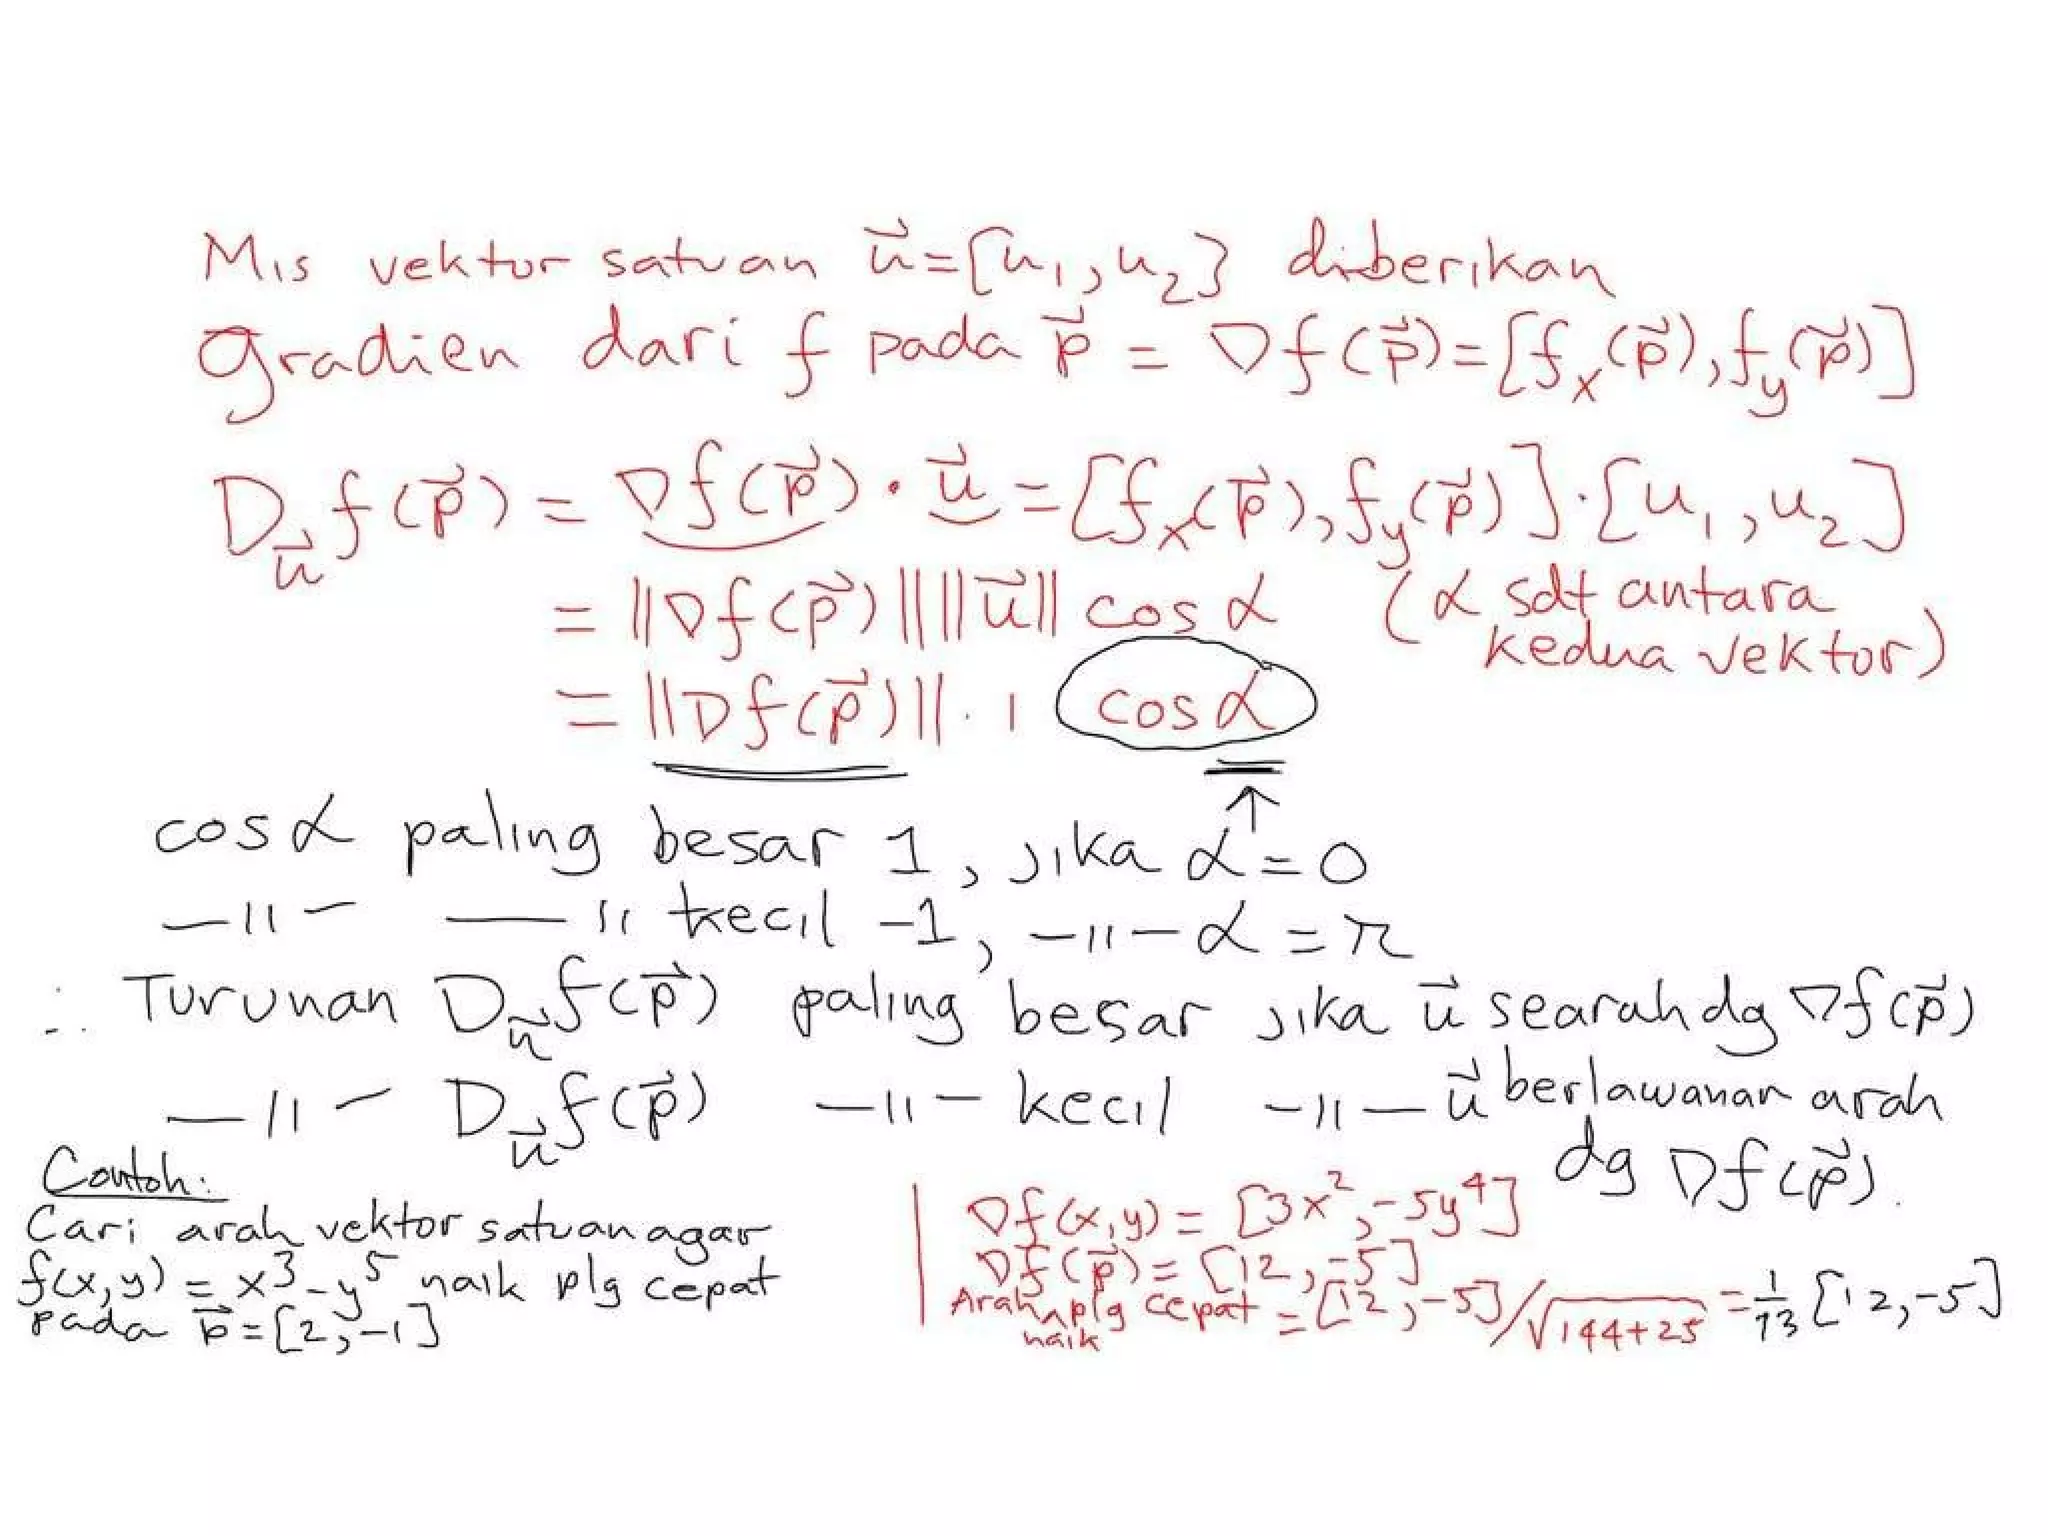 Mis vektor satuan u⃗=[u₁,u₂] diberikan
Gradien dari f pada p⃗ = ∇f(p⃗)=[fₓ(p⃗),f_y(p⃗)]
D_u⃗ f(p⃗) = ∇f(p⃗)·u⃗ = [fₓ(p⃗),f_y(p⃗)]·[u₁,u₂]
= ||∇f(p⃗)|| ||u⃗|| cos α (α sdt antara
kedua vektor)
= ||∇f(p⃗)||·1 cos α
↑
cos α paling besar 1, jika α=0
—||— —|| kecil -1, —||— α=π
∴ Turunan D_u⃗ f(p⃗) paling besar jika u⃗ searah dg ∇f(p⃗)
—||— D_u⃗ f(p⃗) —||— kecil —||— u⃗ berlawanan arah
dg ∇f(p⃗).
Contoh:
Cari arah vektor satuan agar
f(x,y) = x³-y⁵ naik plg cepat
pada p⃗=[2,-1]
∇f(x,y) = [3x²,-5y⁴]
∇f(p⃗) = [12,-5]
Arah naik plg cepat = [12,-5]/√144+25 = 1/13 [12,-5]